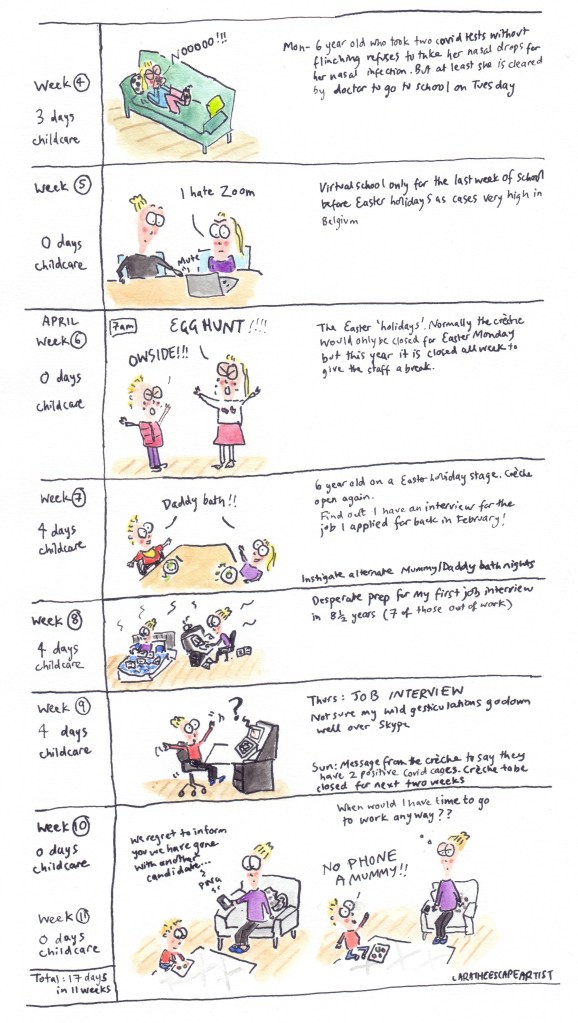 Week 4
3 days
childcare
NOOOOO!!!
Mon- 6 year old who took two covid tests without
flinching refuses to take her nasal drops for
her nasal infection. But at least she is cleared
by doctor to go to school on Tuesday
Week 5
0 days
childcare
I hate Zoom
Mute
Virtual school only for the last week of school
before Easter holidays as cases very high in
Belgium
APRIL
Week 6
0 days
childcare
7am
EGG HUNT!!!
OWSIDE!!!
The Easter 'holidays'. Normally the crèche
would only be closed for Easter Monday
but this year it is closed all week to
give the staff a break.
Week 7
4 days
childcare
Daddy bath!!
6 year old on a Easter holiday stage. Crèche
open again.
Find out I have an interview for the
job I applied for back in February!
Instigate alternate Mummy/Daddy bath nights
Week 8
4 days
childcare
Desperate prep for my first job interview
in 8½ years (7 of those out of work)
Week 9
4 days
childcare
?
Thurs: JOB INTERVIEW
Not sure my wild gesticulations go down
well over Skype
Sun: Message from the crèche to say they
have 2 positive Covid cases. Crèche to be
closed for next two weeks
Week 10
0 days
childcare
We regret to inform
you we have gone
with another
candidate...
PING
When would I have time to go
to work anyway??
NO PHONE
A MUMMY!!
Week 11
0 days
childcare
Total: 17 days
in 11 weeks
LARATHEESCAPEARTIST